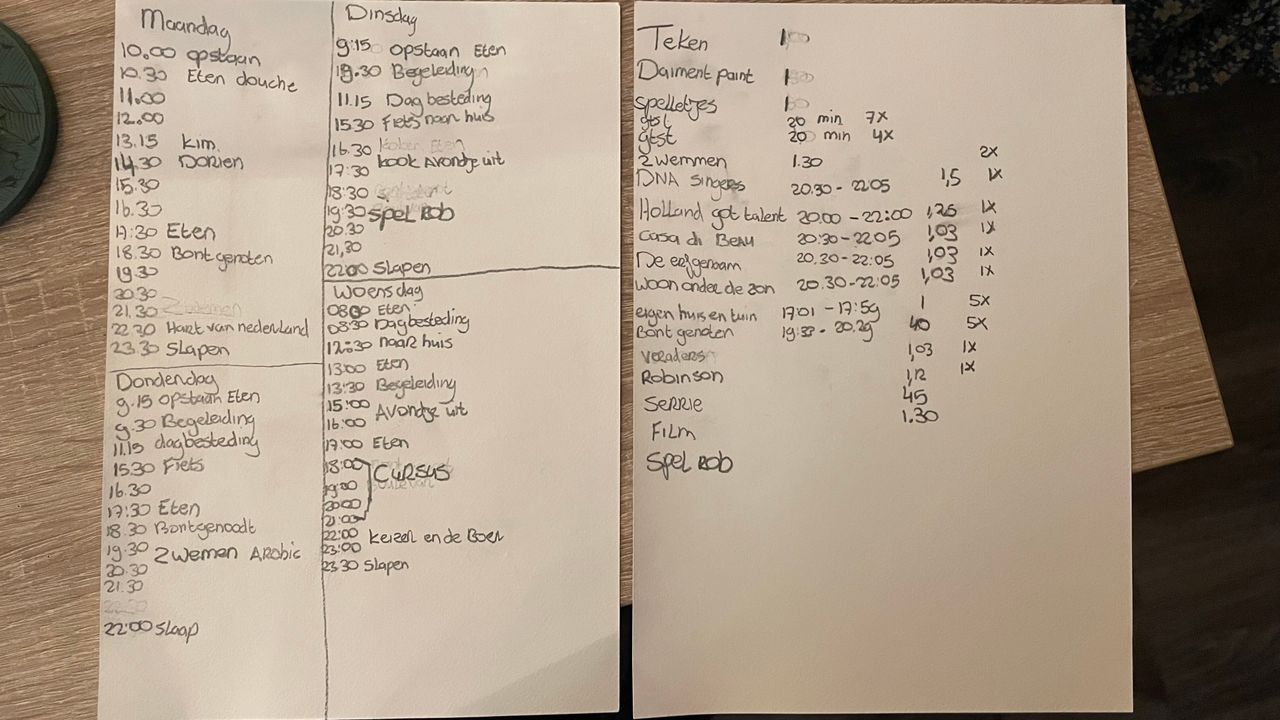 Maandag
10.00 opstaan
10.30 Eten douche
11.00
12.00
13.15 kim.
14.30 Dorien
15.30
16.30
17:30 Eten
18.30 Bontgenoten
19.30
20.30
21.30
22.30 Hart van nederland
23.30 Slapen
Donderdag
9.15 opstaan Eten
9.30 Begeleiding
11.15 dagbesteding
15.30 Fiets
16.30
17:30 Eten
18.30 Bontgenoodt
19.30 Zwemen Arobic
20.30
21.30
22:00 Slaap
Dinsdag
9:15 opstaan Eten
9.30 Begeleiding
11.15 Dagbesteding
15.30 Fiets naar huis
16.30
17:30 kook Avondje uit
18:30
19:30 Spel Rob
20.30
21,30
22.00 Slapen
Woensdag
08.00 Eten
08:30 Dagbesteding
12:30 naar huis
13:00 Eten
13:30 Begeleiding
15:00 Avondje uit
16:00
17:00 Eten
18:00 CURSUS
19:00
20:00
21:00
22:00 keizer en de Boer
23:00
23.30 Slapen
Teken 1
Daiment paint 1
spelletjes 1
gtst 20 min 7x
gtst 20 min 4x
Zwemmen 1.30 2x
DNA Singers 20.30 - 22:05 1,5 1x
Holland got talent 20.00 - 22:00 1,25 1x
Casa di Beau 20:30 - 22:05 1,03 1x
De erfgenaam 20.30 - 22:05 1,03 1x
woon onder de zon 20.30 - 22:05 1,03 1x
eigen huis en tuin 17:01 - 17:59 1 5x
Bontgenoten 19:37 - 20.29 40 5x
Veraders 1,03 1x
Robinson 1,12 1x
SERRIE 45
FILM 1.30
Spel Rob